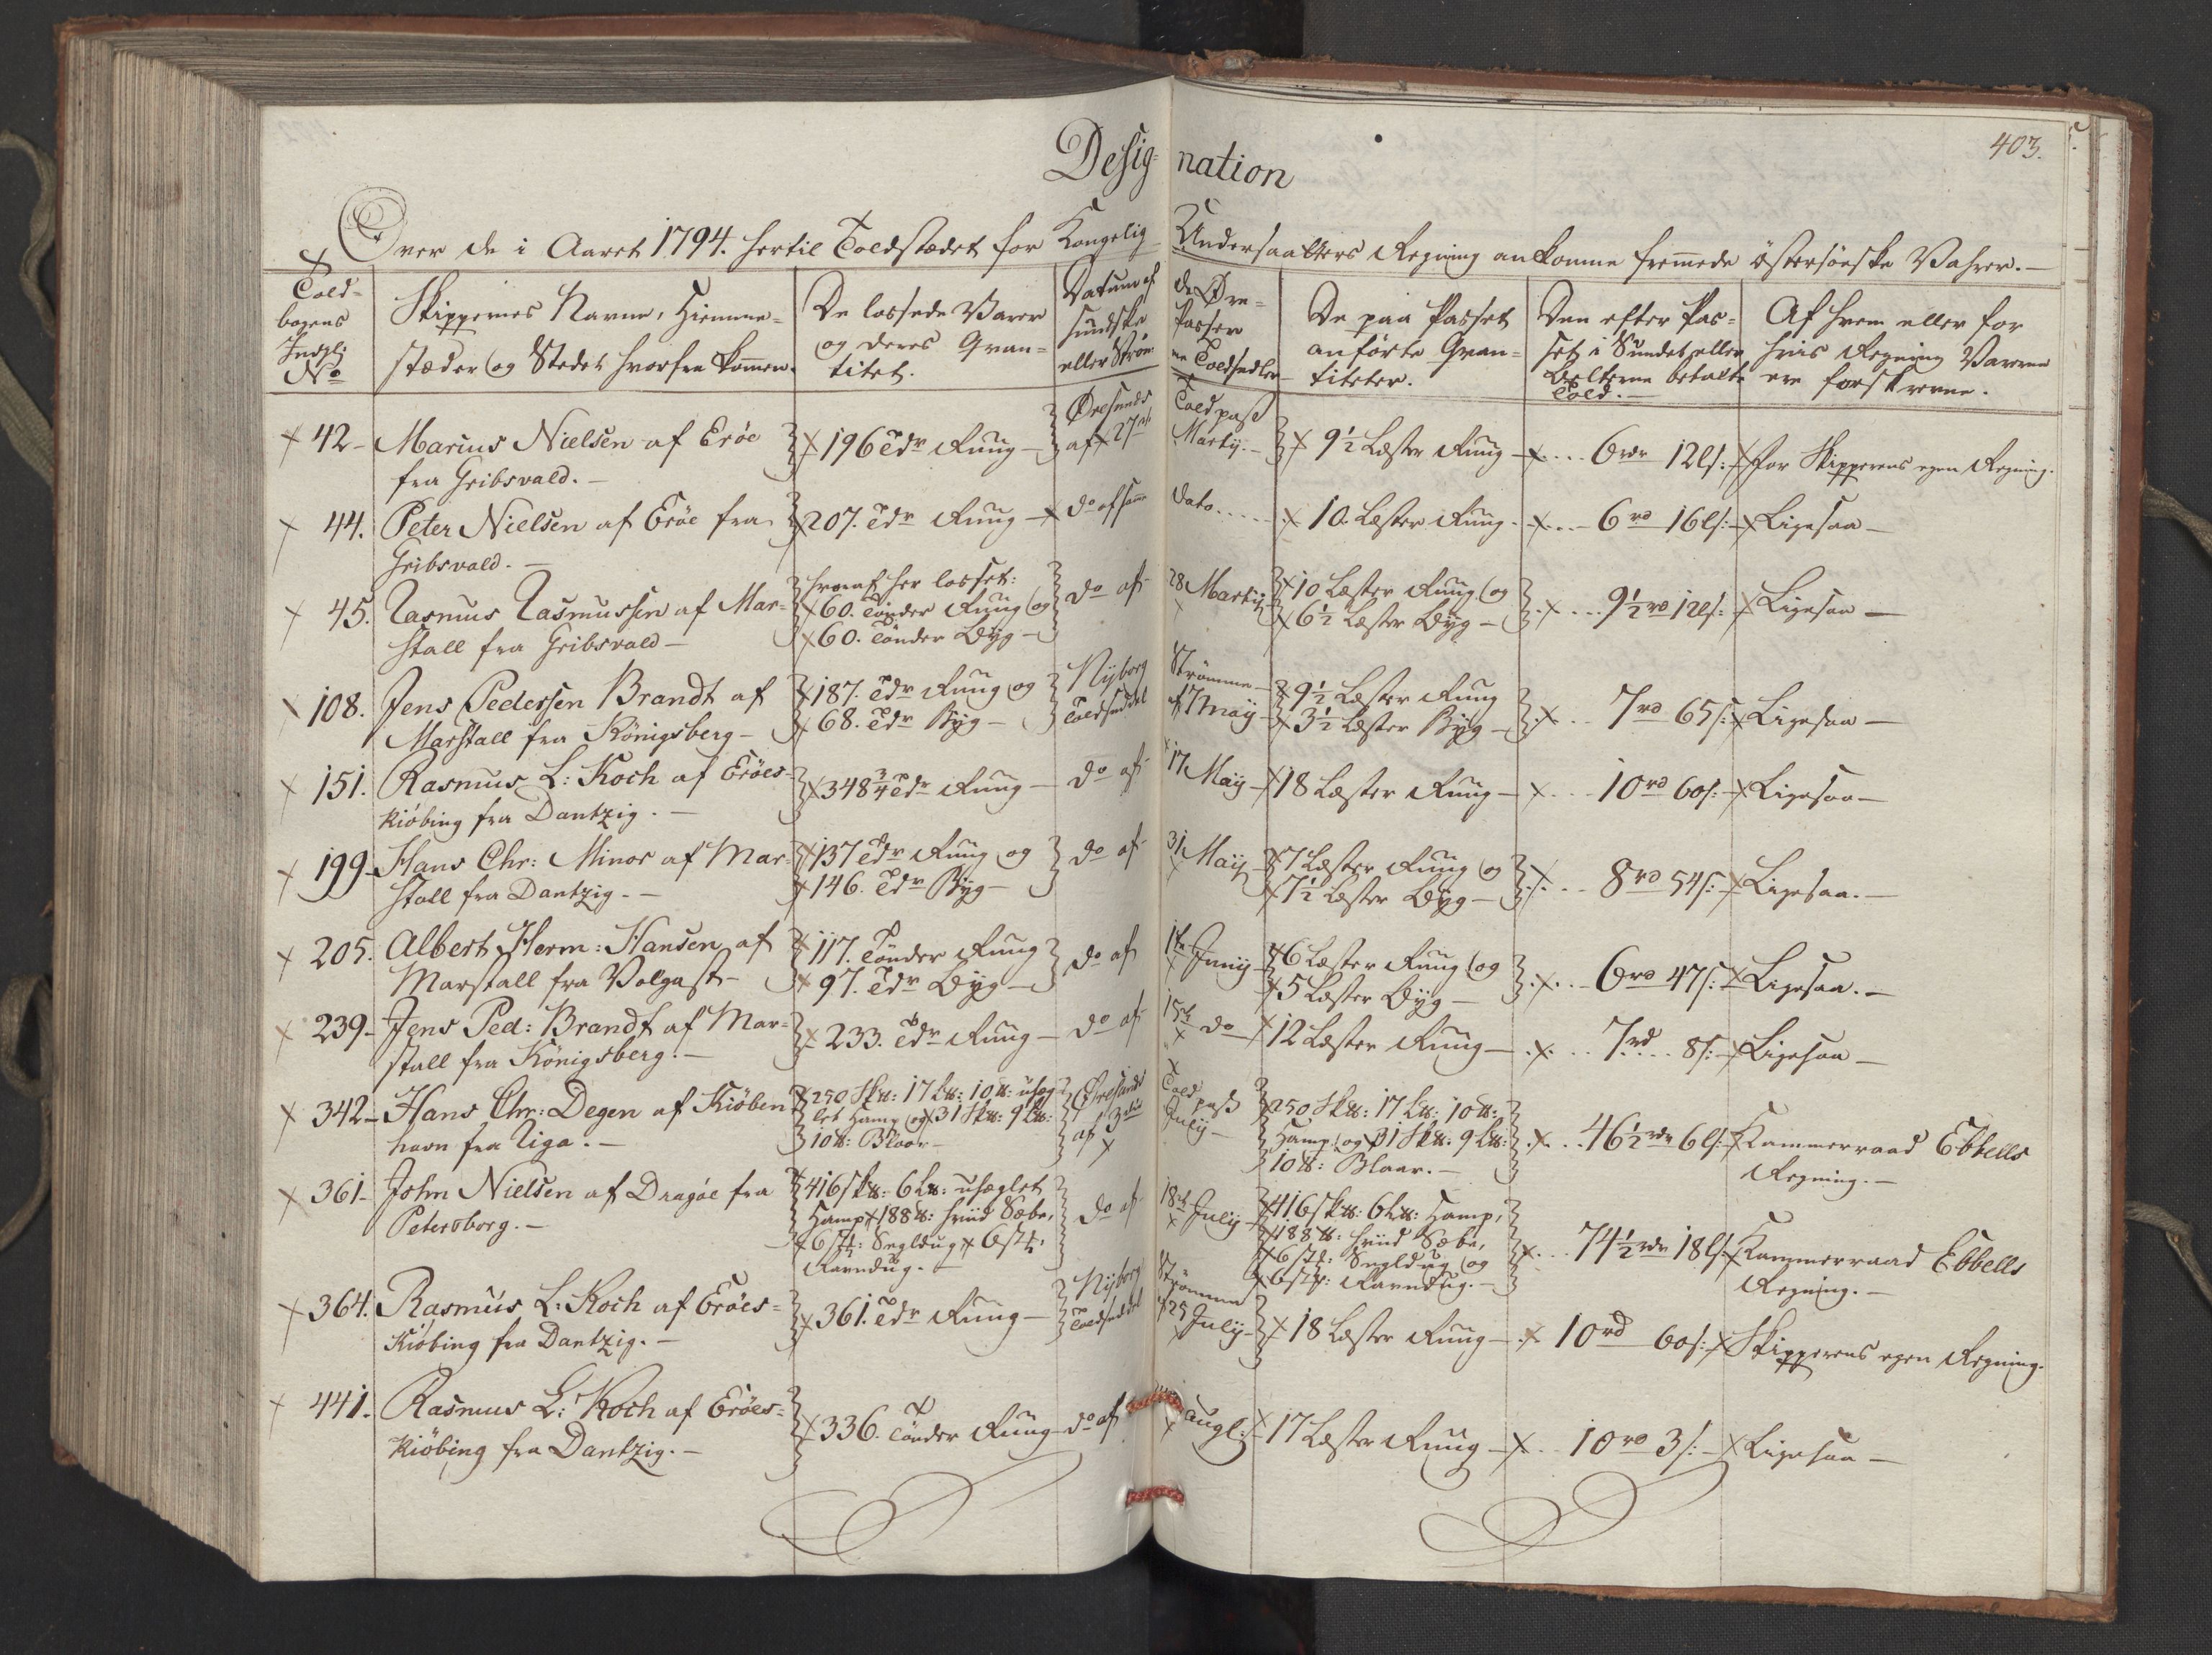 403.
Desig- nation
Over de i Aaret 1794. hertil Toldstædet for Kongelig Undersaatters Regning ankomne fremmede østersøeske Vahrer.—
Told-
bogens
Indg:
No
Skippernes Navne, Hiemme-
stæder og Stedet hvorfra kommen.
De lossede Varer
og deres Qvan-
titet.
Datum af de Øre-
sundske Passer
eller Strøm- me Toldsedler
De paa Passet
anførte Qvan-
titeter.
Den efter Pas-
set i Sundet eller
Belterne betalte
Told.—
Af hvem eller for
hvis Regning Varerne
ere forskrevne.
42- Marius Nielsen af Eröe
fra Gribsvald.—
196 Tdr Rug— Øresunds Toldpass
af 27 Martij.— 9½ Læster Rug— 6rdr 12ls: for Skipperens egen Regning.
44. Peter Nielsen af Eröe fra
Gribsvald.—
207. Tdr Rug— do af samme dato.... 10. Læster Rug. 6rd 16ls: Ligesaa—
45. Rasmus Rasmussen af Mar-
stall fra Gribsvald—
hvoraf her losset:
60. Tönder Rug og
60. Tönder Byg— do af 28 Martij
10 Læster Rug og
6½ Læster Byg— 9½rd 12ls: Ligesaa—
108. Jens Pedersen Brandt af
Marstall fra Königsberg—
187. Tdr Rug og
68. Tdr Byg— Nyborg Strømme-
Toldseddel af 7 Maij
9½ Læster Rug
3½ Læster Byg— 7rd 65s: Ligesaa—
151. Rasmus L: Koch af Eröes-
kiöbing fra Dantzig.—
348¾ Tdr Rug— do af 17 Maij 18 Læster Rug— 10rd 60s: Ligesaa—
199- Hans Chr: Minor af Mar-
stall fra Dantzig.—
137 Tdr Rug og
146. Tdr Byg— do af 31 Maij
7 Læster Rug og
7½ Læster Byg— 8rd 54s: Ligesaa.—
205. Albert Herm: Hansen af
Marstall fra Volgast—
117. Tönder Rug
97. Tdr Byg— do af 1te Junij
6 Læster Rug og
5 Læster Byg— 6rd 47s: Ligesaa.—
239- Jens Ped: Brandt af Mar-
stall fra Königsberg.—
233. Tdr Rug— do af 15te do 12 Læster Rug— 7rd 8s: Ligesaa—
342- Hans Chr: Degen af Kiöben
havn fra Riga.—
250 Sk℔: 17 L℔: 10 ℔: uheg-
let Hamp og 31 Sk℔: 9 L℔:
10 ℔: Blaar— Øresunds Told pass
af 3die Julij—
250 Sk℔: 17 L℔: 10 ℔:
Hamp og 31 Sk℔: 9 L℔:
10 ℔: Blaar.— 46½rdr 6ls: Kammerraad Ebbells
Regning.—
361- John Nielsen af Dragöe fra
Petersborg.—
416 Sk℔: 6 L℔: uheglet
Hamp 188 ℔: hviid Sæbe,
6 st: Segldug 6 st:
Ravndug.— do af 18de Julij
416 Sk℔: 6 L℔: Hamp,
188 ℔: hviid Sæbe,
6 st: Segldug og
6 st: Ravndug.— 74½rdr 18ls: Kammerraad Ebbells
Regning.—
364. Rasmus L: Koch af Eröes-
Kiöbing fra Dantzig.—
361. Tdr Rug— Nyborg Strømme
Toldseddel 25 Julij— 18 Læster Rug— 10rd 60s: Skipperens egen Regning.
441. Rasmus L: Koch af Eröes-
kiöbing fra Dantzig.—
336. Tönder Rug— do af Aug: 17 Læster Rug— 10rd 3s: Ligesaa—